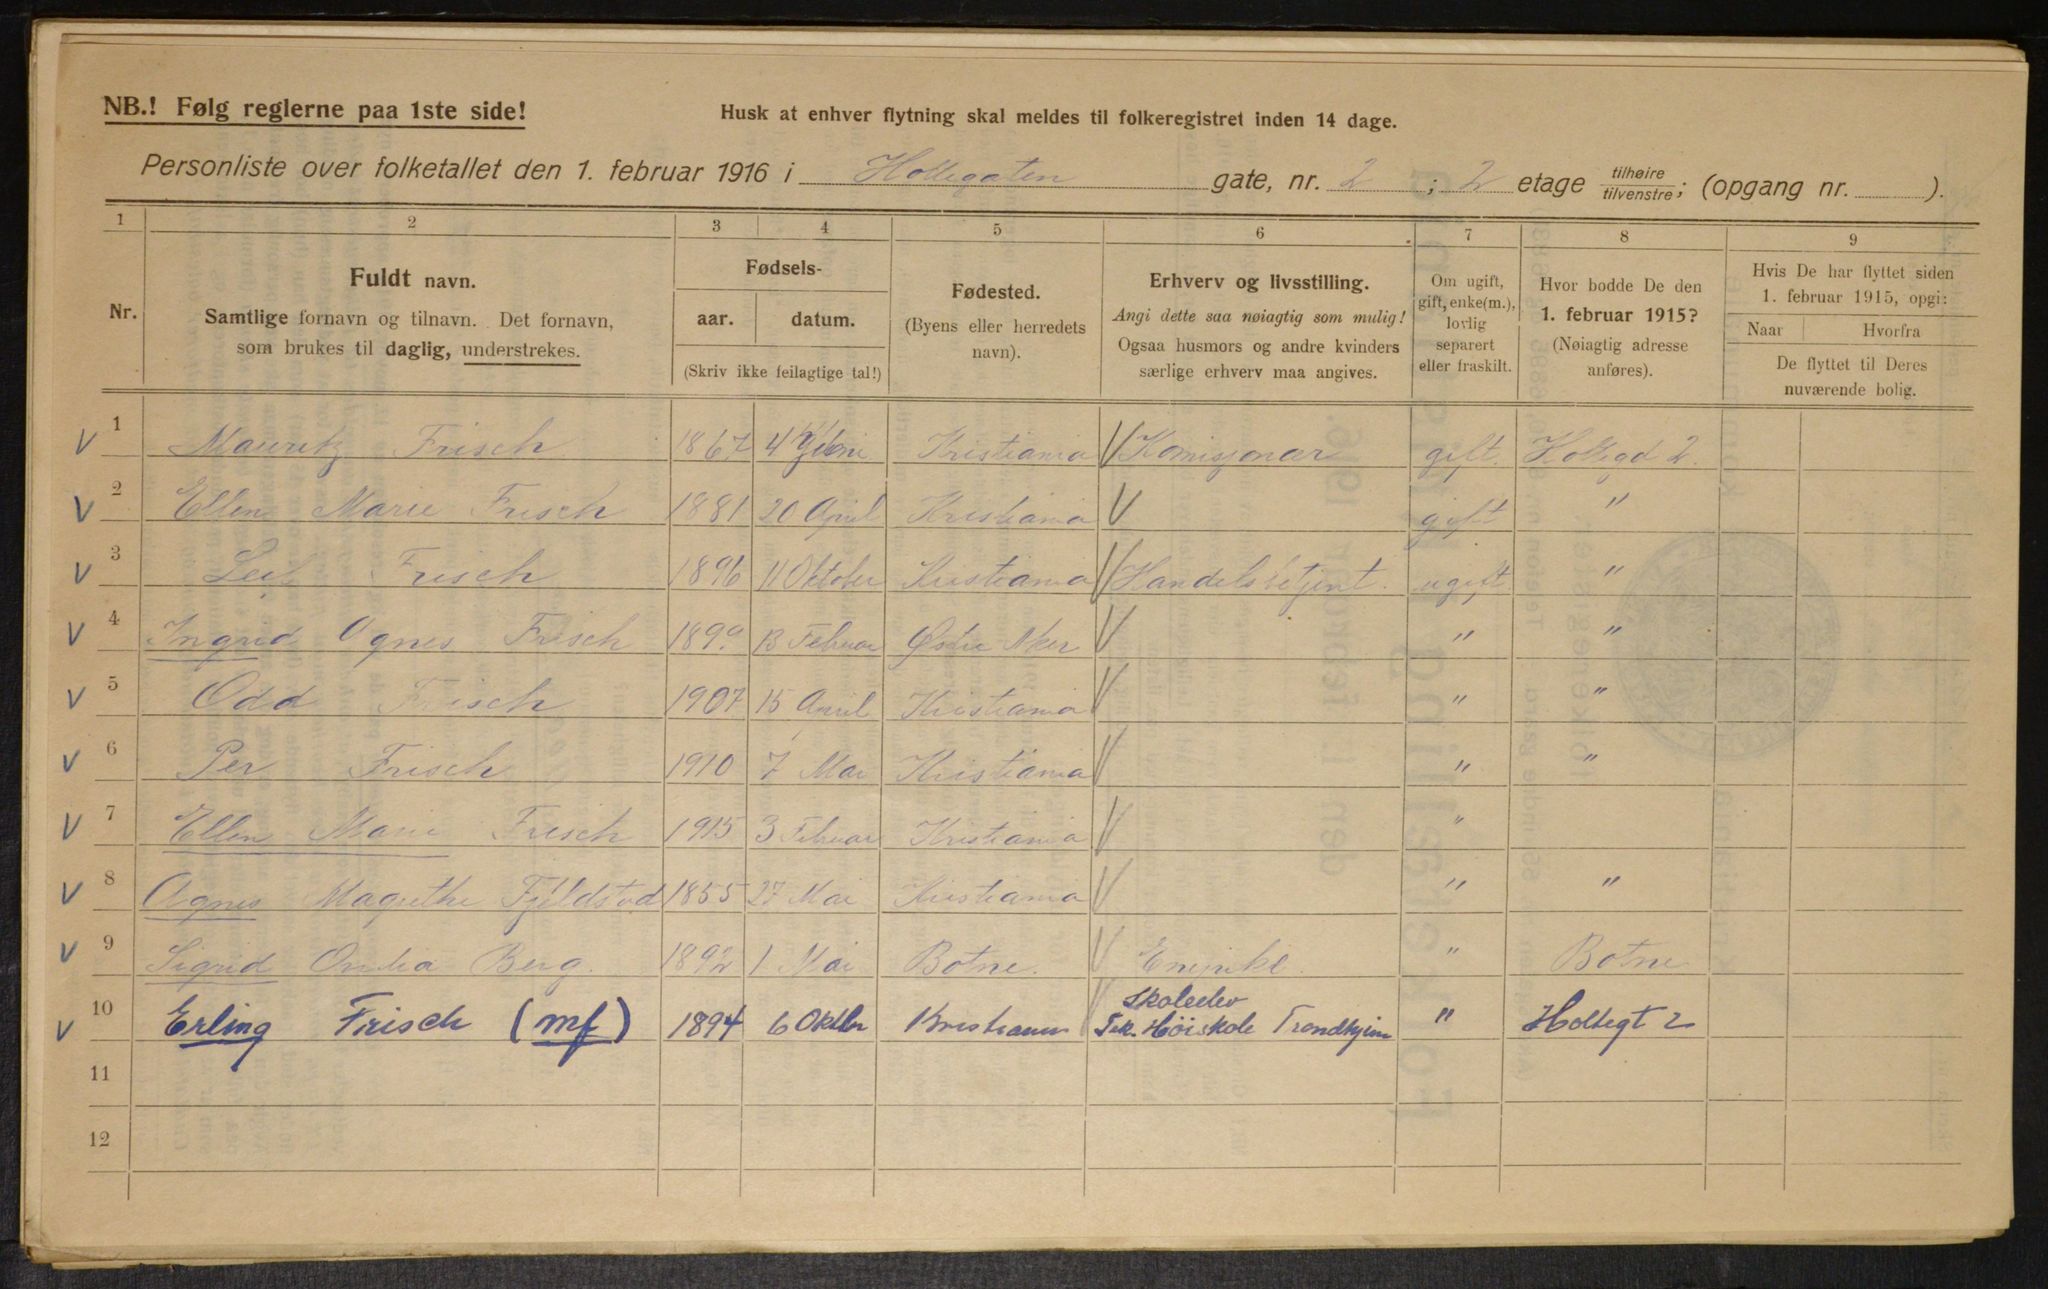 NB.! Følg reglerne paa 1ste side!
Husk at enhver flytning skal meldes til folkeregistret inden 14 dage.
Personliste over folketallet den 1. februar 1916 i Holtegaten gate, nr. 2 ; 2 etage tilhøire/tilvenstre; (opgang nr. ).
1 2 3 4 5 6 7 8 9
Nr.
Fuldt navn.
Samtlige fornavn og tilnavn. Det fornavn,
som brukes til daglig, understrekes.
Fødsels-
aar. datum.
(Skriv ikke feilagtige tal!)
Fødested.
(Byens eller herredets
navn).
Erhverv og livsstilling.
Angi dette saa nøiagtig som mulig!
Ogsaa husmors og andre kvinders
særlige erhverv maa angives.
Om ugift,
gift, enke(m.),
lovlig
separert
eller fraskilt.
Hvor bodde De den
1. februar 1915?
(Nøiagtig adresse
anføres).
Hvis De har flyttet siden
1. februar 1915, opgi:
Naar Hvorfra
De flyttet til Deres
nuværende bolig.
V 1 Mauritz Frisch 1867 4 Kristiania V Komisjonær gift. Holtegd 2.
V 2 Ellen Marie Frisch 1881 20 April Kristiania V gift "
V 3 Leif Frisch 1896 11 Oktober Kristiania V Handelsbetjent. ugift "
V 4 Ingrid Agnes Frisch 1899 13 Februar Østre Aker V " "
V 5 Odd Frisch 1907 15 April Kristiania V " "
V 6 Per Frisch 1910 7 Mai Kristiania V " "
V 7 Ellen Marie Frisch 1915 3 Februar Kristiania V "
V 8 Agnes Magrethe Fjeldstad 1855 27 Mai Kristiania V " "
V 9 Sigrid Berg. 1892 1 Mai Botne. V " Botne
Skoleelev
V 10 Erling Frisch (mf) 1894 6 Oktbr Kristiania Tek. Høiskole Trondhjem " Holtegt 2
11
12